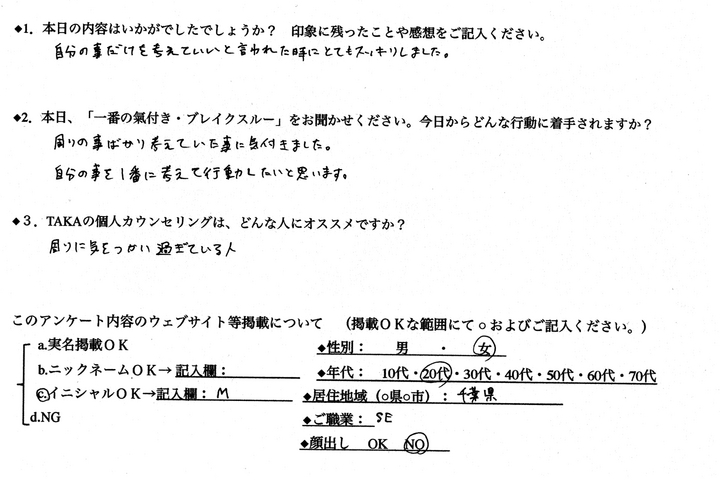 ◆1．本日の内容はいかがでしたでしょうか？　印象に残ったことや感想をご記入ください。
自分の事だけを考えていいと言われた時にとてもスッキリしました。
◆2．本日、「一番の氣付き・ブレイクスルー」をお聞かせください。今日からどんな行動に着手されますか？
周りの事ばかり考えていた事に気付きました。
自分の事を1番に考えて行動したいと思います。
◆３．TAKAの個人カウンセリングは、どんな人にオススメですか？
周りに気をつかい過ぎている人
このアンケート内容のウェブサイト等掲載について　（掲載ＯＫな範囲にて○およびご記入ください。）
a.実名掲載ＯＫ
◆性別：　男　・　女
b.ニックネームＯＫ→記入欄：
◆年代：　10代・20代・30代・40代・50代・60代・70代
c.イニシャルＯＫ→記入欄：M
◆居住地域（○県○市）：千葉県
d.NG
◆ご職業：SE
◆顔出し　OK　NO